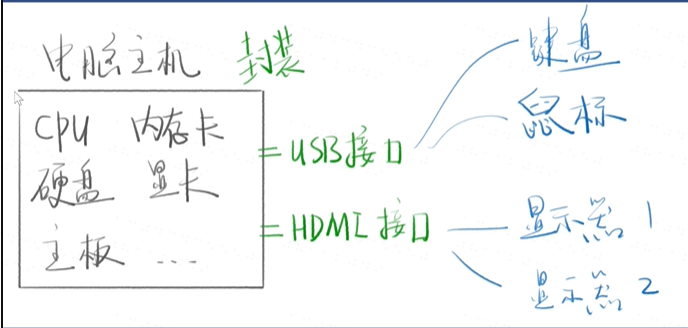 电脑主机 封装
键盘
鼠标
CPU 内存卡
硬盘 显卡
主板 ...
=USB接口
=HDMI接口
显示器1
显示器2